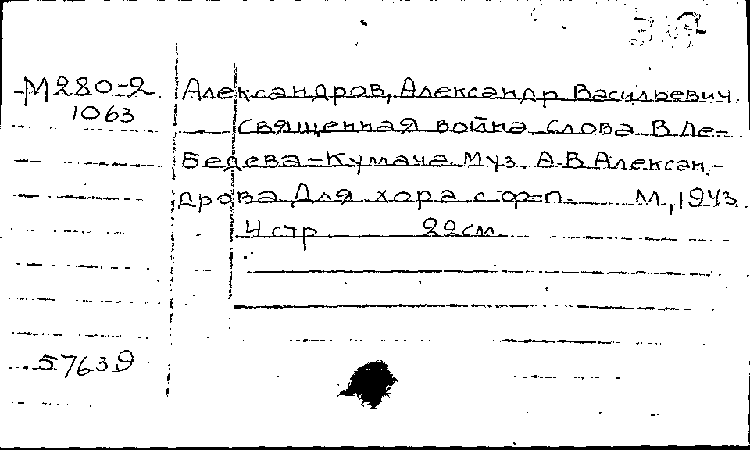 М280-2 Александров, Александр Васильевич.
1063
Священная война слова В Ле-
бедева-Кумача Муз. А.В Алексан-
дрова Для хора с ф-п. М, 1943
4 стр 22см
57639